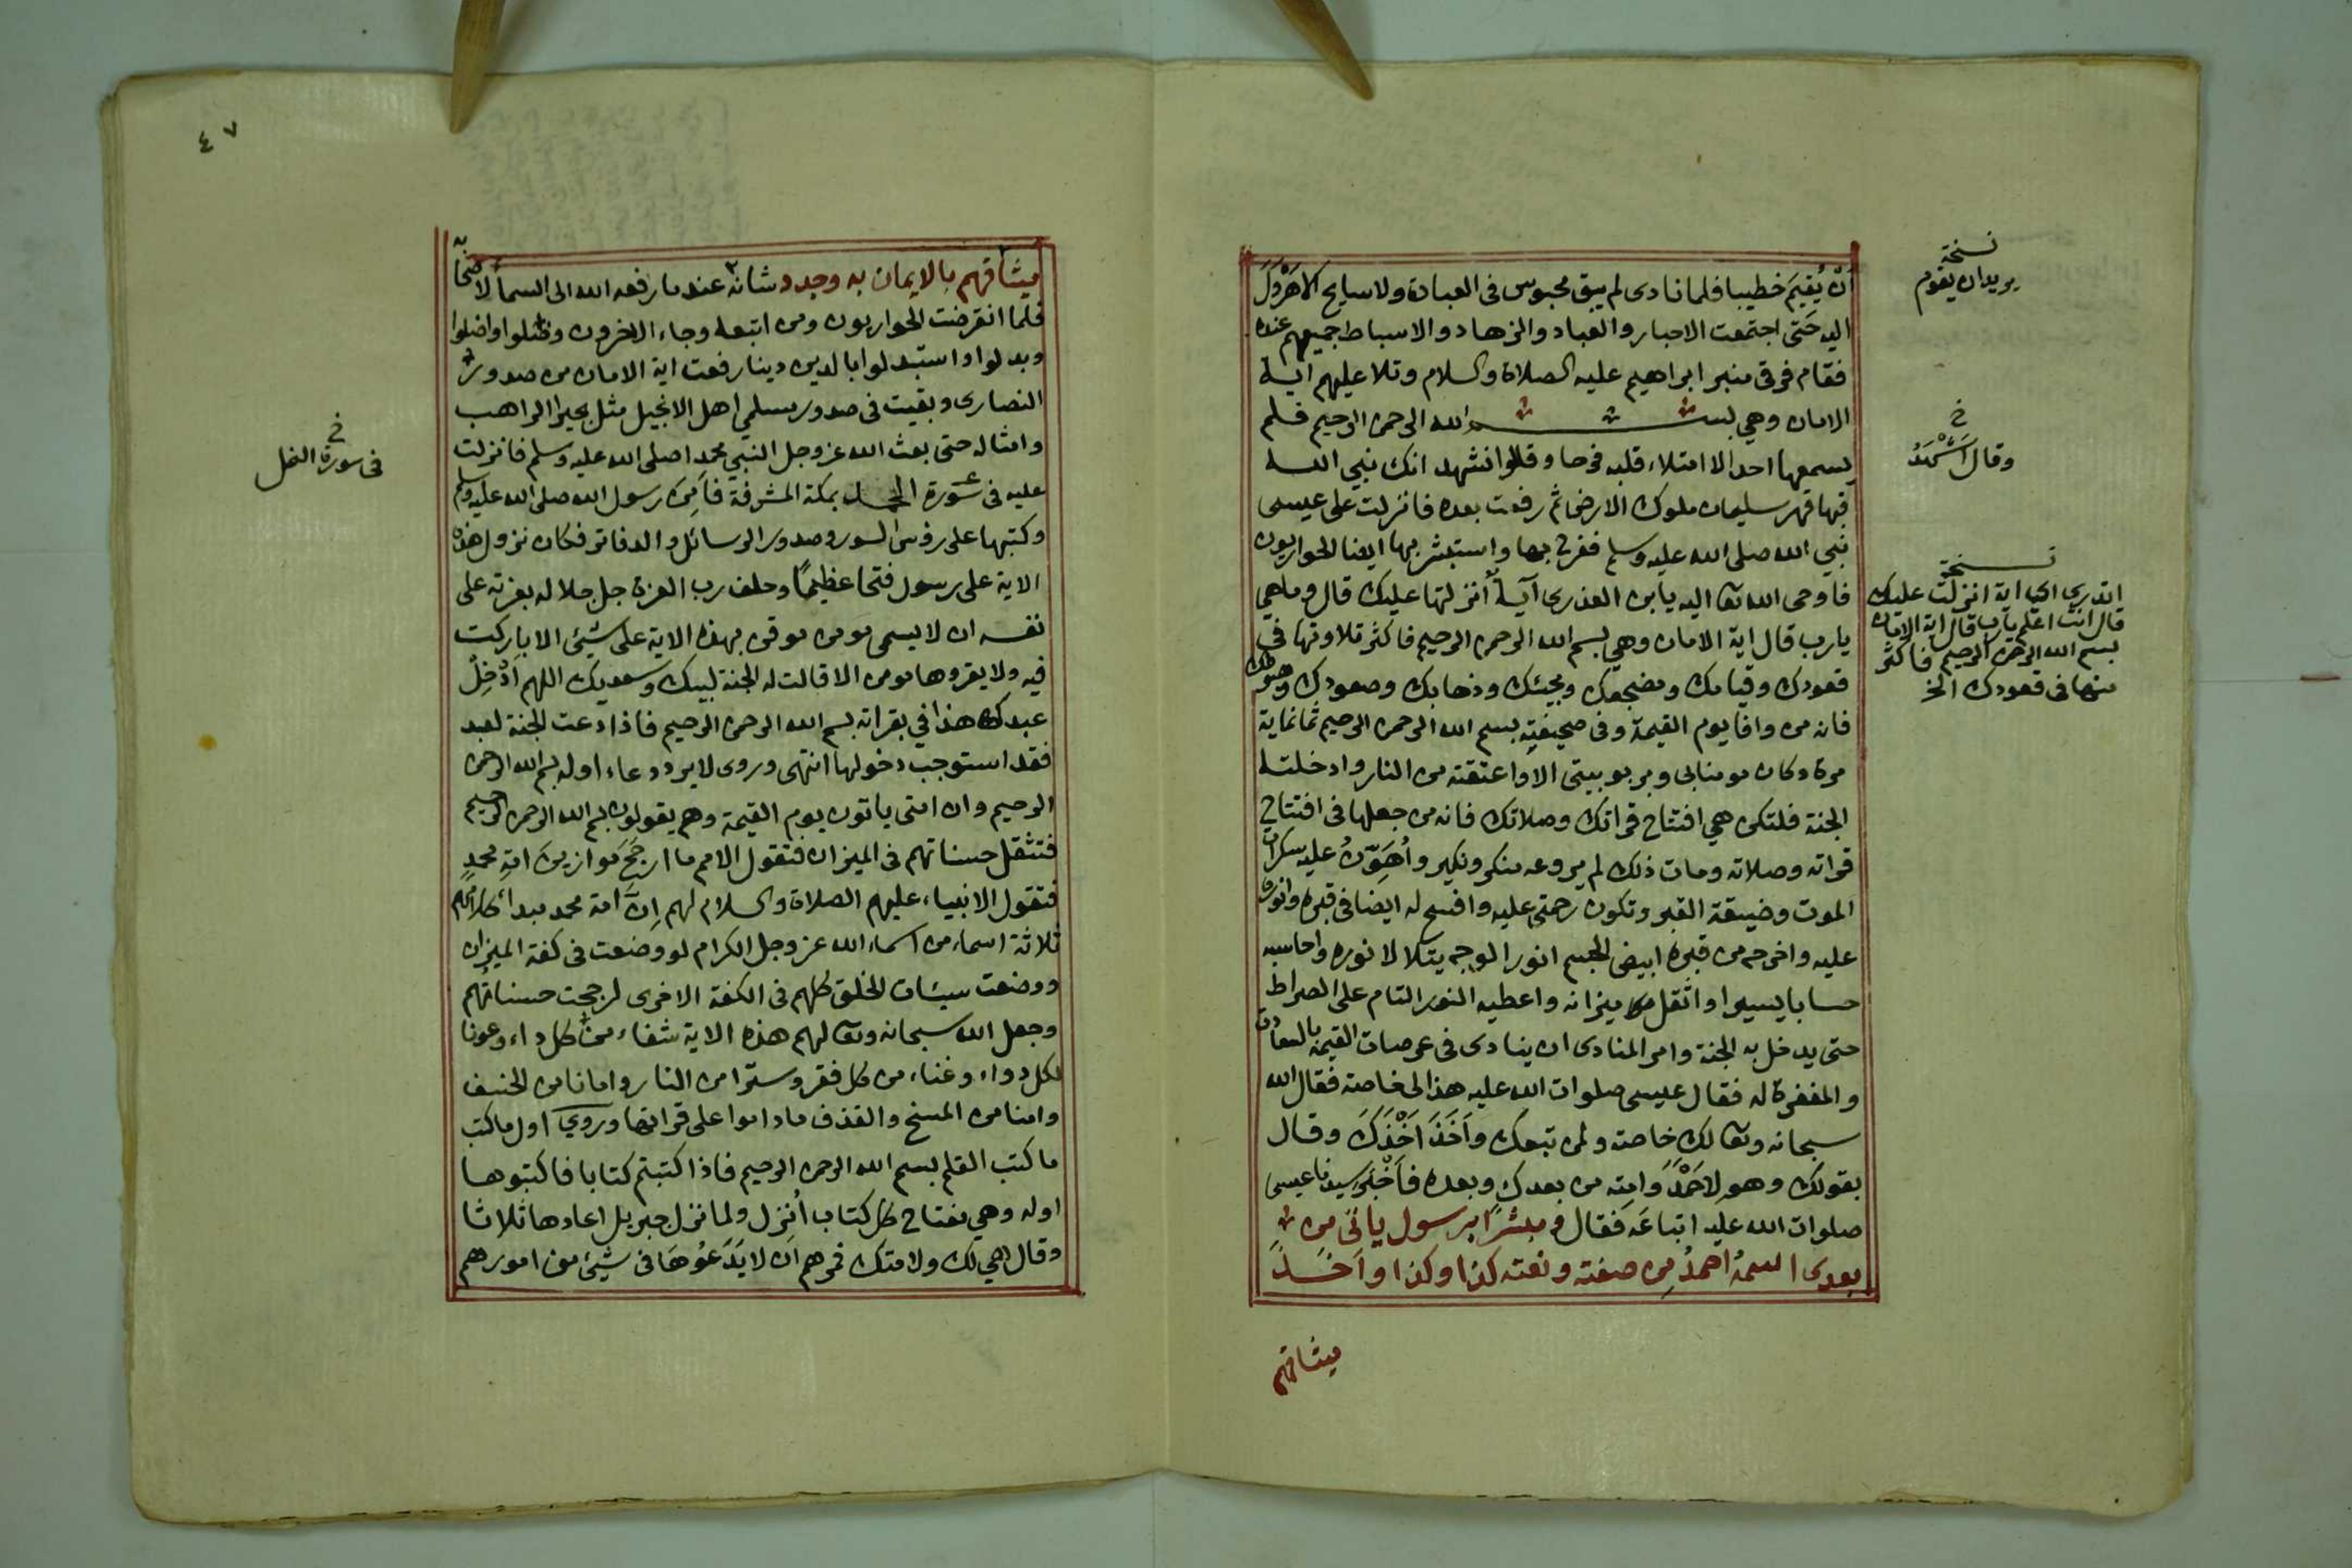 أن يُقيمَ خطيبا فلما نادى لم يبق محبوس فى العبادة ولا سايح الا هَرْوَلَ
اليه حَتى اجتمعت الاحبار والعباد والزهاد والاسباط جميعهم عنده
فقام فوق منبر ابراهيم عليه الصلاة والسلام وتلا عليهم اية
الامان وهي بسم الله الرحمن الرحيم فلم
يسمعها احد الا امتلاء قلبه فرحا وقالوا نشهد انك نبي الله
فبها قهر سليمان ملوك الارض ثم رفعت بعده فانزلت على عيسى
نبي الله صلى الله عليه وسلم ففرح بها واستبشر بها ايضا الحواريون
فاوحى الله تعا اليه يابن العذرى آيةً أنزلتها عليك قال وما هي
يارب قال اية الامان وهي بسم الله الرحمن الرحيم فاكثر تلاوتها في
قعودك وقيامك ومضجعك ومجيئك وذهابك وصعودك وهبوطك
فانه من وافا يوم القيمة وفى صحيفتِه بسم الله الرحمن الرحيم ثمانماية
مرة وكان مومنا بى وبربوبيتى الا واعتقته من النار وادخلته
الجنة فلتكن هي افتتاح قراتك وصلاتك فانه من جعلها فى افتتاح
قراته وصلاته ومات ذلك لم يروعه منكر ونكير وأُهَوِّنُ عليه سكرات
الموت وضيقة القبر وتكون رحمتى عليه وافسح له ايضا فى قبره وانور
عليه واخرجه من قبره ابيض الجسم انور الوجه يتلالا نوره واحاسبه
حسابا يسيرا واثقل ميزانه واعطيه النور التام على الصراط
حتى يدخل به الجنة وامر المنادى ان ينادى فى عرصات القيمة بالسعادة
والمغفرة له فقال عيسى صلوات الله عليه هذا لى خاصة فقال الله
سبحانه وتعا لك خاصة ولمن تبعك وأَخَذَ اَخْذَكَ وقال
بقولك وهو لاحَمْدَ وَامتِه من بعدك وبعده فأَخْبَرَ سيدنا عيسى
صلوات الله عليه اتباعَه فقال ومبشرًا برسول ياتى من
بعدى اسمُهُ احمدُ مِن صفته ونعته كذا وكذا وأخَذَ
ميثاقهم
نسخة
يريد ان يقوم
خ
وقال اَشْهَدُ
نسخة
اتدري اي اية انزلت عليك
قال انت اعلم يارب قال اية الامان
بسم الله الرحمن الرحيم فاكثر
منها فى قعودك الخ
٤٧
ميثاقهم بالايمان به وجدد شانه عند ما رفعه الله الى السما لاصحابه
فلما انقرضت الحواريون ومن اتبعه وجاء الاخرون وضلوا واضلوا
وبدلوا واستبدلوا بالدين دينا رفعت اية الامان من صدور
النصارى وبقيت فى صدور مسلمي اهل الانجيل مثل بحيرا الراهب
وامثاله حتى بعث الله عز وجل النبي محمدا صلى الله عليه وسلم فانزلت
عليه فى سورة بمكة المشرفة فأمِنَ رسول الله صلى الله عليه وسلم
وكتبها على روس السور وصدور الرسائل والدفاتر فكان نزول هذه
الاية على رسول فتحا عظيمًا وحلف رب العزة جل جلاله بعزته على
نفسه ان لا يسمى مومن موقن بهذه الاية على شيئ الا باركت
فيه ولا يقروها مومن الا قالت له الجنة لبيك وسعديك اللهم أدْخِلْ
عبدك هذا في بقراته بسم الله الرحمن الرحيم فاذا دعت الجنة لعبد
فقد استوجب دخولها انتهى وروى لا يرد دعاء اوله بسم الله الرحمن
الرحيم وان امتى ياتون يوم القيمة وهم يقولون بسم الله الرحمن الرحيم
فتثقل حسناتهم فى الميزان فتقول الامم ما ارجَحَ مَوازينَ امةِ محمدٍ
فتقول الانبياء عليهم الصلاة والسلام لهم اِنَّ امة محمد مبدا كلامهم
ثلاثة اسماء من اسماء الله عز وجل الكرام لو وضعت فى كفة الميزان
ووضعت سيئات الخلق كلهم فى الكفة الاخرى لرجحت حسناتُهم
وجعل الله سبحانه وتعا لهم هذه الاية شفاء من كل داء وعونا
لكل دواء وغناء من كل فقر وسترا من النار وامانا من الخسف
وامنا من المسخ والقذف ما داموا على قراتها وروي اول ما كتب
ما كتب القلم بسم الله الرحمن الرحيم فاذا كتبتم كتابا فاكتبوها
اوله وهي مفتاح كل كتاب أُنزِل ولما نزل جبريل اعادها ثلاثا
وقال هي لك ولامتك فمرهم أن لا يَدَعُوهَا فى شيئ من امورهم
خ
فى سورة النمل